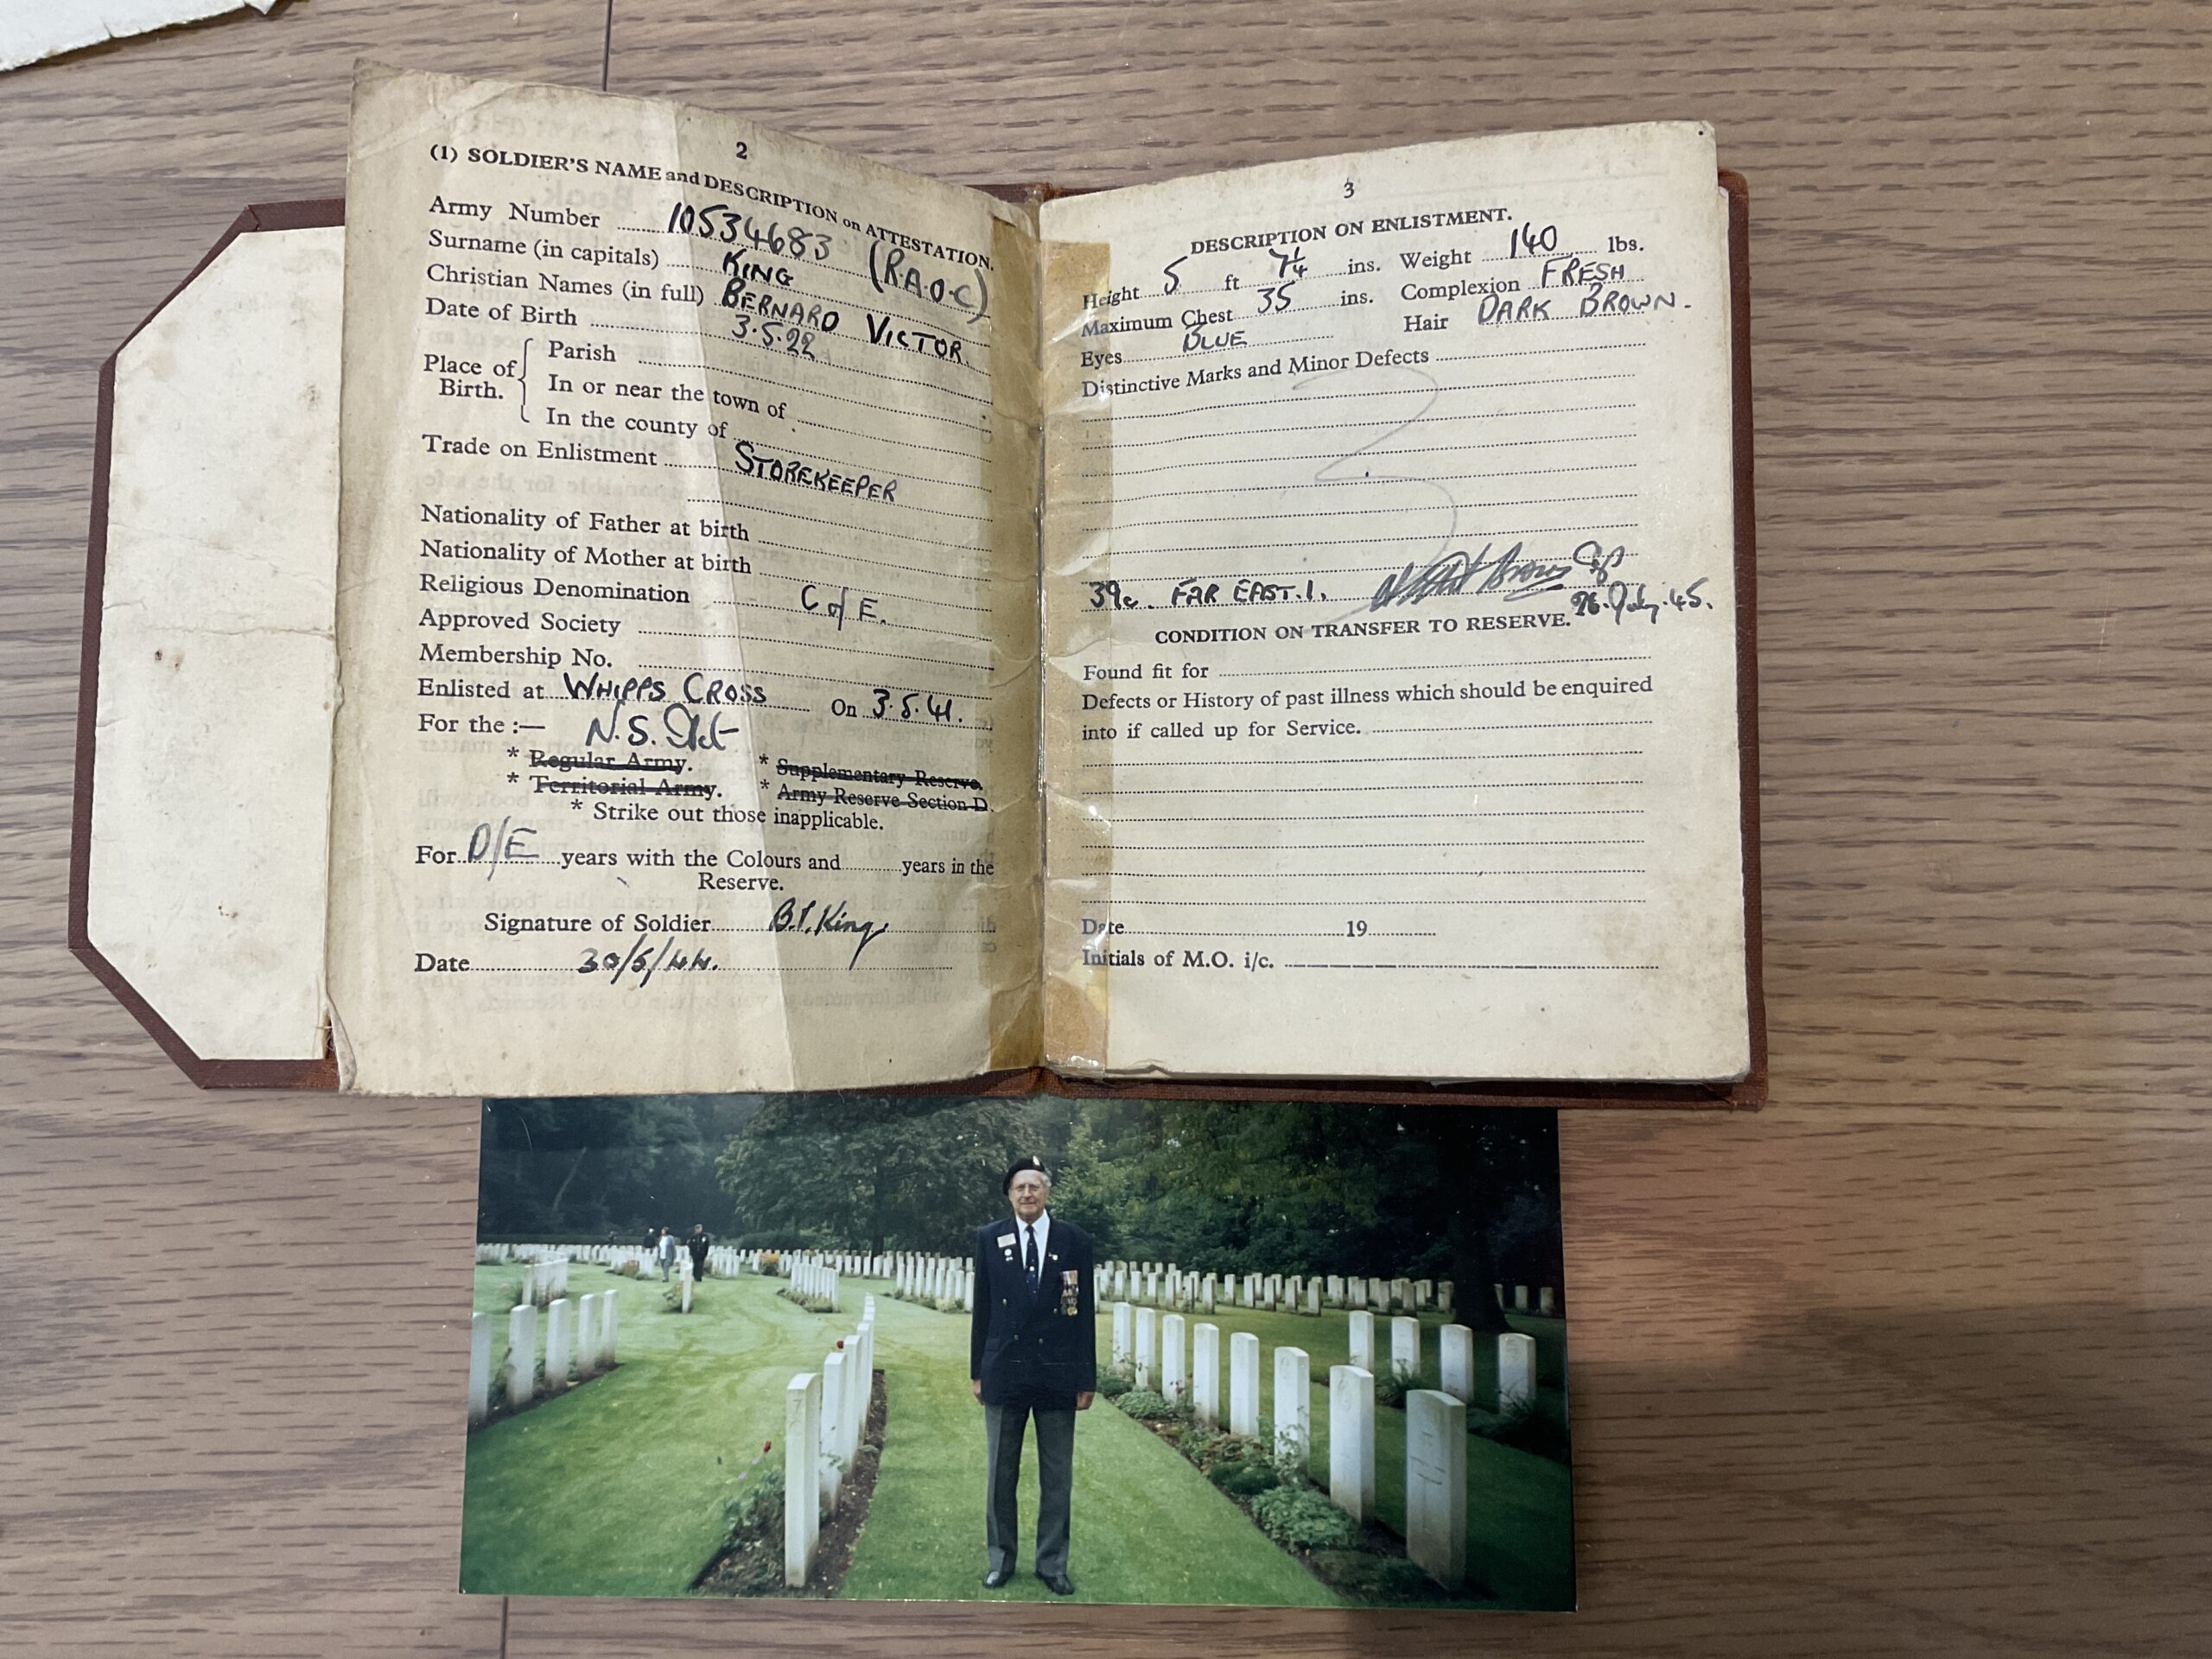 2
(1) SOLDIER'S NAME and DESCRIPTION on ATTESTATION.
Army Number 10534683 (R.A.O.C)
Surname (in capitals) KING
Christian Names (in full) BERNARD VICTOR.
Date of Birth 3.5.22
Place of Birth. { Parish
In or near the town of
In the county of
Trade on Enlistment STOREKEEPER
Nationality of Father at birth
Nationality of Mother at birth
Religious Denomination C of E.
Approved Society
Membership No.
Enlisted at WHIPPS CROSS On 3.5.41.
For the :— N.S.
* Regular Army. * Supplementary Reserve.
* Territorial Army. * Army Reserve Section D.
* Strike out those inapplicable.
For D/E years with the Colours and years in the
Reserve.
Signature of Soldier B.V. King
Date 30/5/44.
3
DESCRIPTION ON ENLISTMENT.
Height 5 ft 7¼ ins. Weight 140 lbs.
Maximum Chest 35 ins. Complexion FRESH
Eyes BLUE Hair DARK BROWN.
Distinctive Marks and Minor Defects
39c. FAR EAST.1.
26.July.45.
CONDITION ON TRANSFER TO RESERVE.
Found fit for
Defects or History of past illness which should be enquired
into if called up for Service.
Date 19
Initials of M.O. i/c.